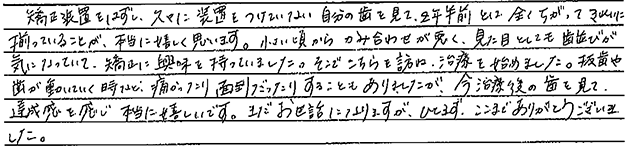 矯正装置をはずし、久々に装置をつけていない自分の歯を見て、2年半前とは全くちがってきれいに
揃っていることが、本当に嬉しく思います。小さい頃からかみ合わせが悪く、見た目としても歯並びが
気になっていて、矯正に興味を持っていました。そこでこちらを訪ね、治療を始めました。抜歯や
歯が動いていく時など、痛かったり面倒だったりすることもありましたが、今治療後の歯を見て、
達成感を感じ本当に嬉しいです。まだお世話になりますが、ひとまず、ここまでありがとうございま
した。